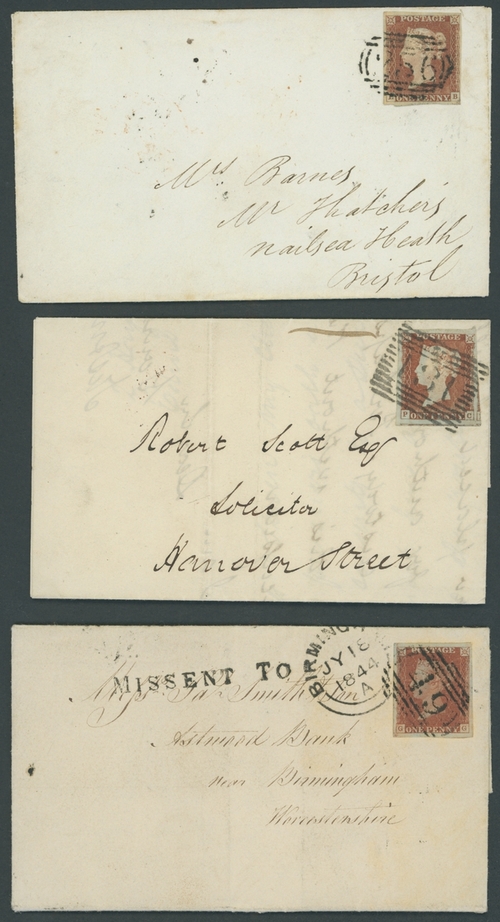 POSTAGE
ONE PENNY
B
Mrs Barnes
Mr Thatchers
nailsea Heath
Bristol
POSTAGE
P ONE PENNY C
Robert Scott Esq
Solicitor
Hanover Street
POSTAGE
G ONE PENNY G
MISSENT TO
JY 18
1844
A
49
Smith
Astwood Bank
near Birmingham
Worcestershire